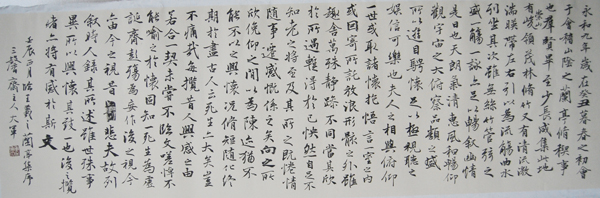 永和九年歲在癸丑暮春之初會
于會稽山陰之蘭亭脩禊事
也群賢畢至少長咸集此地
有崇山峻領茂林脩竹又有清流激
湍暎帶左右引以為流觴曲水
列坐其次雖無絲竹管弦之
盛一觴一詠上足以暢敘幽情
是日也天朗氣清惠風和暢仰
觀宇宙之大俯察品類之盛
所以遊目騁懷足以極視聽之
娛信可樂也夫人之相與俯仰
一世或取諸懷抱悟言一室之內
或因寄所託放浪形骸之外雖
趣舍萬殊靜躁不同當其欣
於所遇暫得於己怏然自足不
知老之將至及其所之既惓情
隨事遷感慨係之矣向之所
欣俛仰之閒以為陳迹猶不
能不以之興懷況脩短隨化終
期於盡古人云死生亦大矣豈
不痛哉每攬昔人興感之由
若合一契未嘗不臨文嗟悼不
能喻之於懷固知一死生為虛
誕齊彭殤為妄作後之視今
亦由今之視昔悲夫故列
敘時人錄其所述雖世殊事
異所以興懷其致一也後之攬
者亦將有感於斯文
壬辰正月臨王羲之蘭亭集序
齋主人大軍